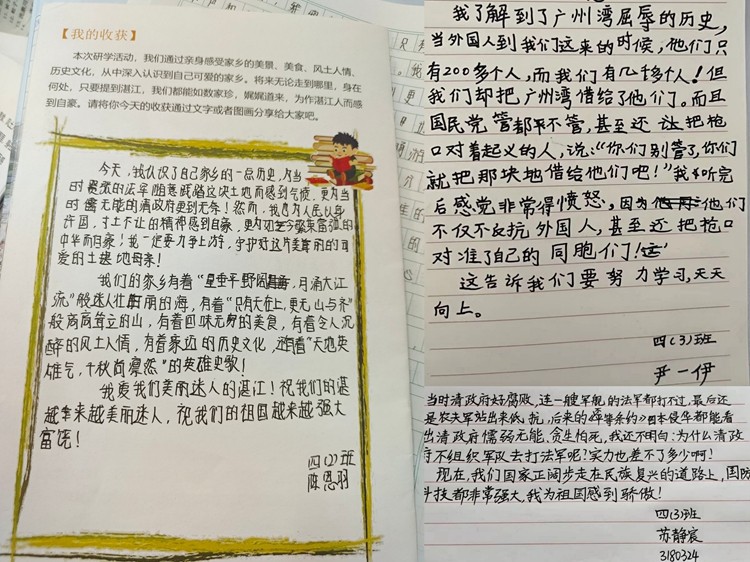 【我的收获】
本次研学活动，我们通过亲身感受家乡的美景、美食、风土人情、
历史文化，从中深入认识到自己可爱的家乡。将来无论走到哪里，身在
何处，只要提到湛江，我们都能如数家珍，娓娓道来，为作湛江人而感
到自豪。请将你今天的收获通过文字或者图画分享给大家吧。
今天，我认识了自己家乡的一总历史，为当
时嚣张的法军践踏这块土地而感到气愤，更为当
时懦无能的清政府感到无奈！然而，我也为人民以身
许国，寸土不让的精神感到自豪，更为如今强荣富强的
中华而自豪！我一定要力争上游，守护好这片美丽的可
爱的土地母亲！
我们的家乡有着“星垂平野阔，月涌大江
流”般迷人壮丽的海，有着“只有天在上，更无山与齐”
般高高耸立的山，有着回味无穷的美食，有着令人沉
醉的风土人情，有着家边的历史文化，还有着“天地英
雄气，千秋尚凛然”的英雄史歌！
我爱我们美丽迷人的湛江！祝我们的湛
越来越美丽迷人，祝我们的祖国越来越强大
富饶！
四（2）班
陈恩羽
我了解到了广州湾屈辱的历史，
当外国人到我们这来的时候，他们只
有200多个人，而我们有几千多个人！但
我们却把广州湾借给了他们。而且
国民党管都不管，甚至还让把枪
口对着起义的人，说：“你们别管了，你们
就把那块地借给他们吧！”我听完
后感觉非常得愤怒，因为他们
不仅不反抗外国人，甚至还把枪口
对准了自己的同胞们！
这告诉我们要努力学习，天天
向上。
四（3）班
尹一伊
当时清政府好腐败，连一艘军舰的法军都打不过，最后还
是农夫军站出来抵抗，后来的《等条约》日本侵华都能看
出清政府懦弱无能，贪生怕死，我还不明白：为什么清政
府不组织军队去打法军呢？实力也差不了多少啊！
现在，我们国家正阔步走在民族复兴的道路上，国防
科技都非常强大，我为祖国感到骄傲！
四（3）班
苏静宸
3180324